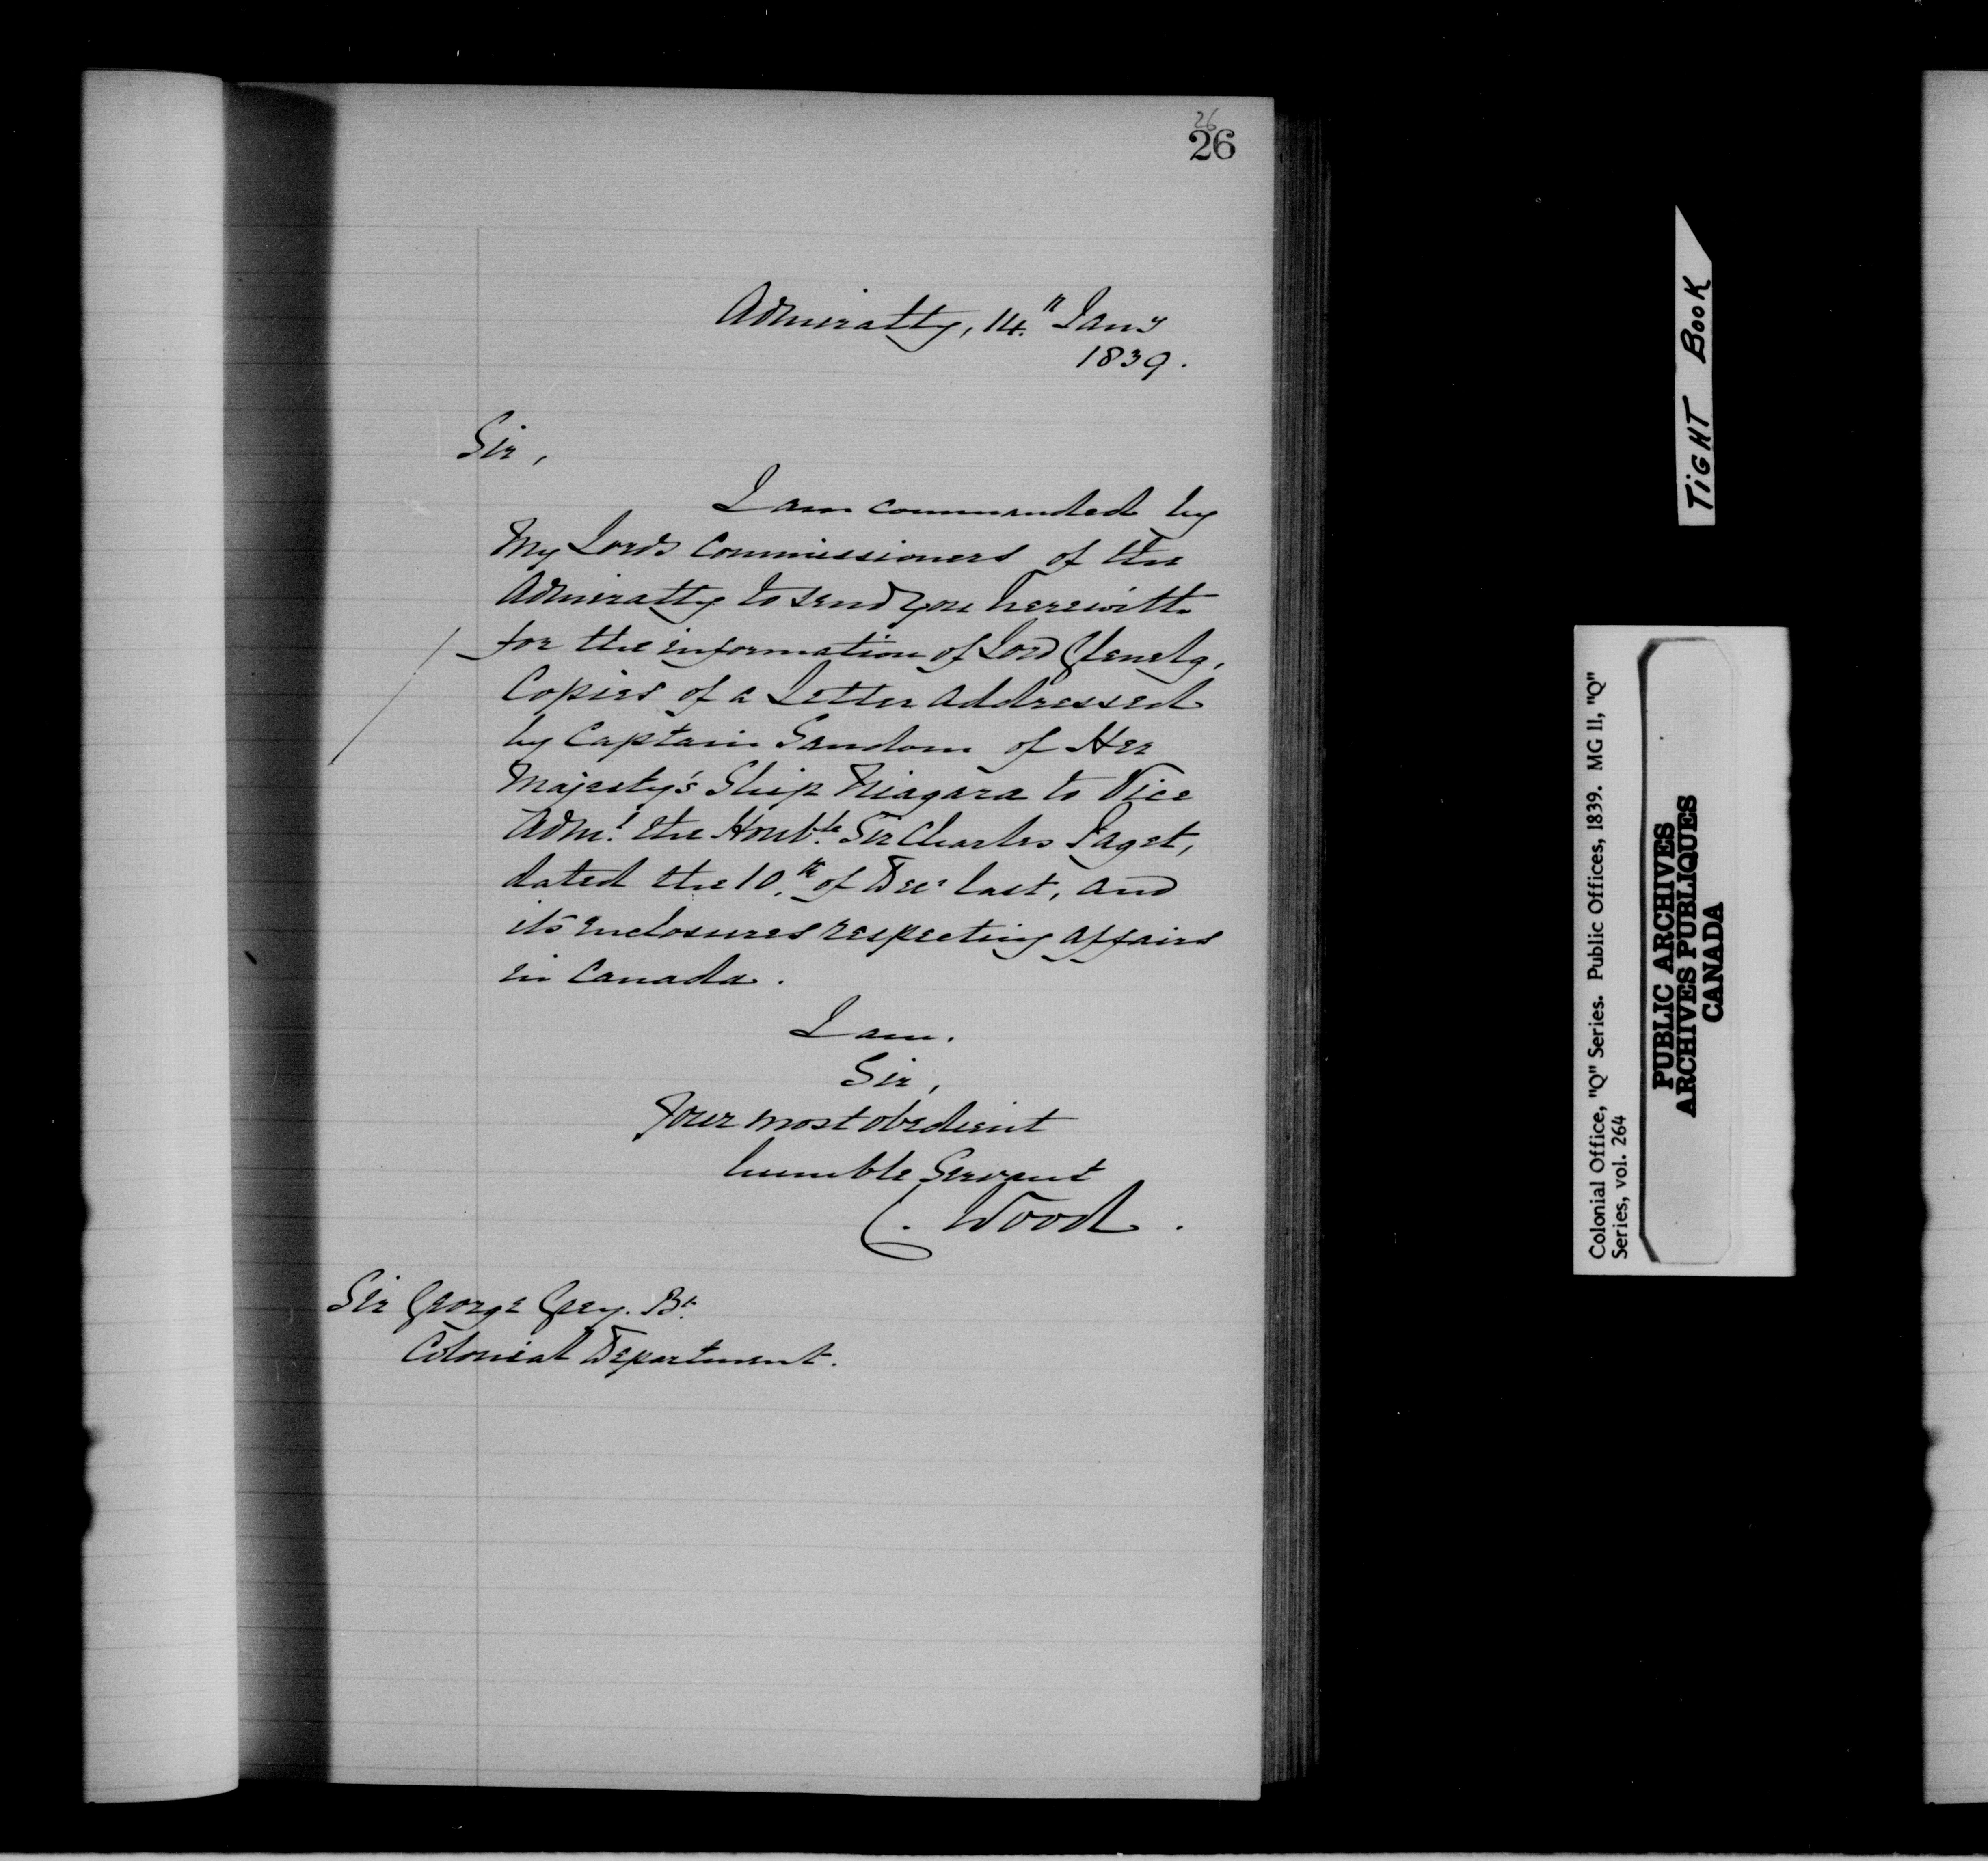 26
26
Admiralty, 14th Jany
1839.
Sir,
I am commanded by
My Lords Commissioners of the
Admiralty to send you herewith
for the information of Lord Glenelg,
Copies of a Letter addressed
by Captain Sandom of Her
Majesty's Ship Niagara to Vice
Adml. the Honble. Sir Charles Paget,
dated the 10th of Decr last, and
its enclosures respecting affairs
in Canada.
I am.
Sir,
Your most obedient
humble Servant
C. Wood.
Sir George Grey. Bt.
Colonial Department.
TIGHT BOOK
Colonial Office, "Q" Series. Public Offices, 1839. MG 11, "Q"
Series, vol. 264
PUBLIC ARCHIVES
ARCHIVES PUBLIQUES
CANADA